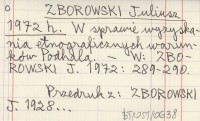 ZBOROWSKI Juliusz
1972 h. W sprawie wyzyska-
nia etnograficznych warun-
ków Podhala. - W: ZBO-
ROWSKI J. 1972: 289-290.
Przedruk z: ZBOROWSKI
J. 1928...